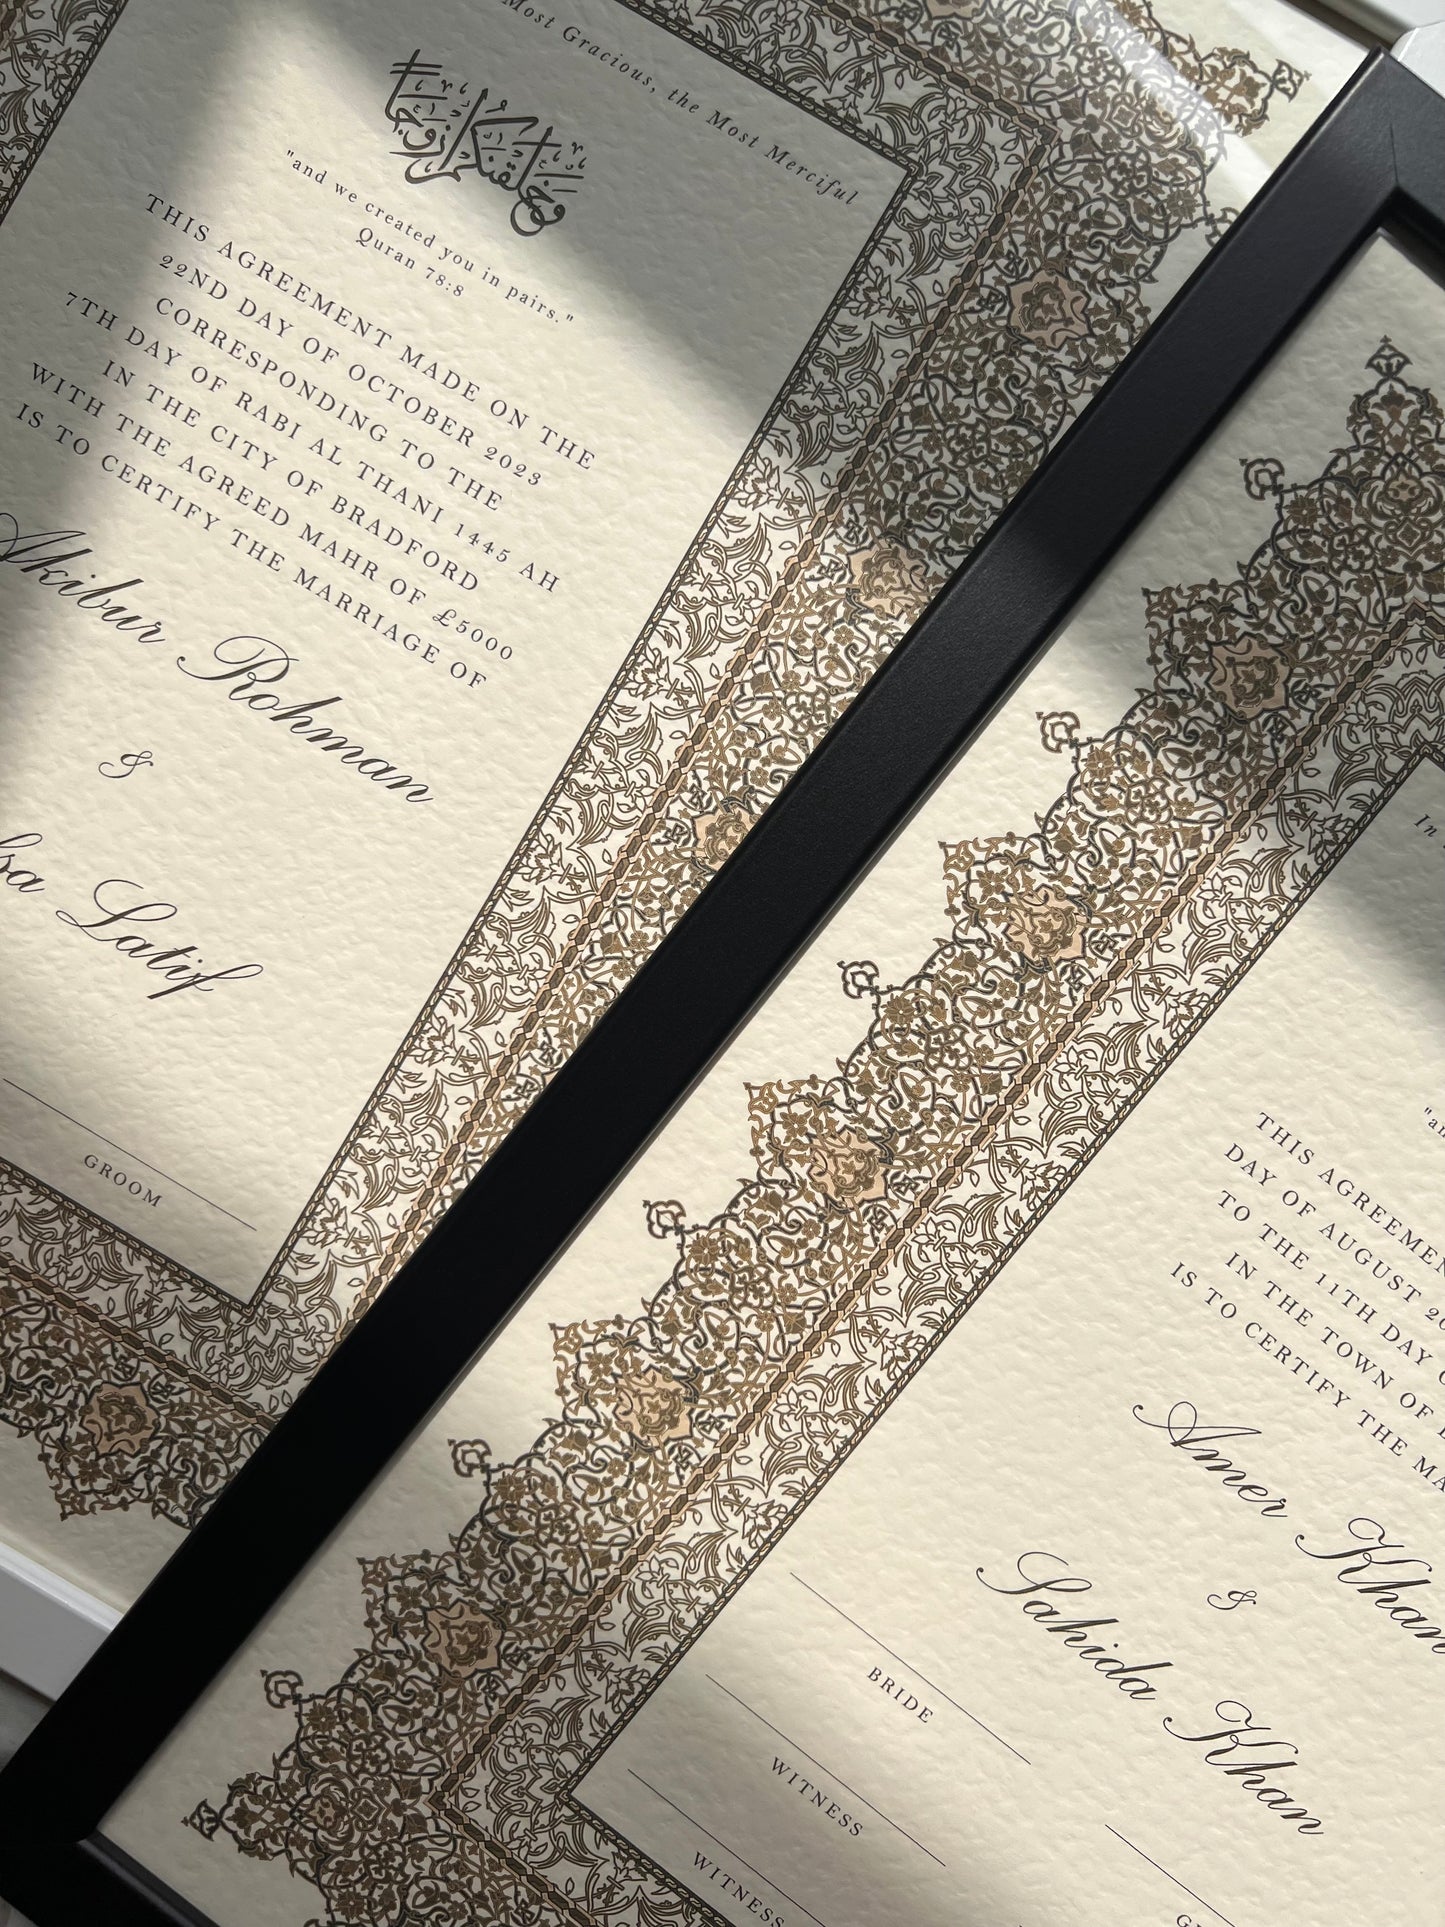 Most Gracious, the Most Merciful
وخلقنكم أزوجا
"and we created you in pairs."
Quran 78:8
THIS AGREEMENT MADE ON THE
22ND DAY OF OCTOBER 2023
CORRESPONDING TO THE
7TH DAY OF RABI AL THANI 1445 AH
IN THE CITY OF BRADFORD
WITH THE AGREED MAHR OF £5000
IS TO CERTIFY THE MARRIAGE OF
Akibur Rohman
&
Latif
GROOM
In
THIS AGREEMEN
DAY OF AUGUST 20
TO THE 11TH DAY
IN THE TOWN OF
IS TO CERTIFY THE MA
Amer Khan
&
Sahida Khan
BRIDE
WITNESS
WITNESS